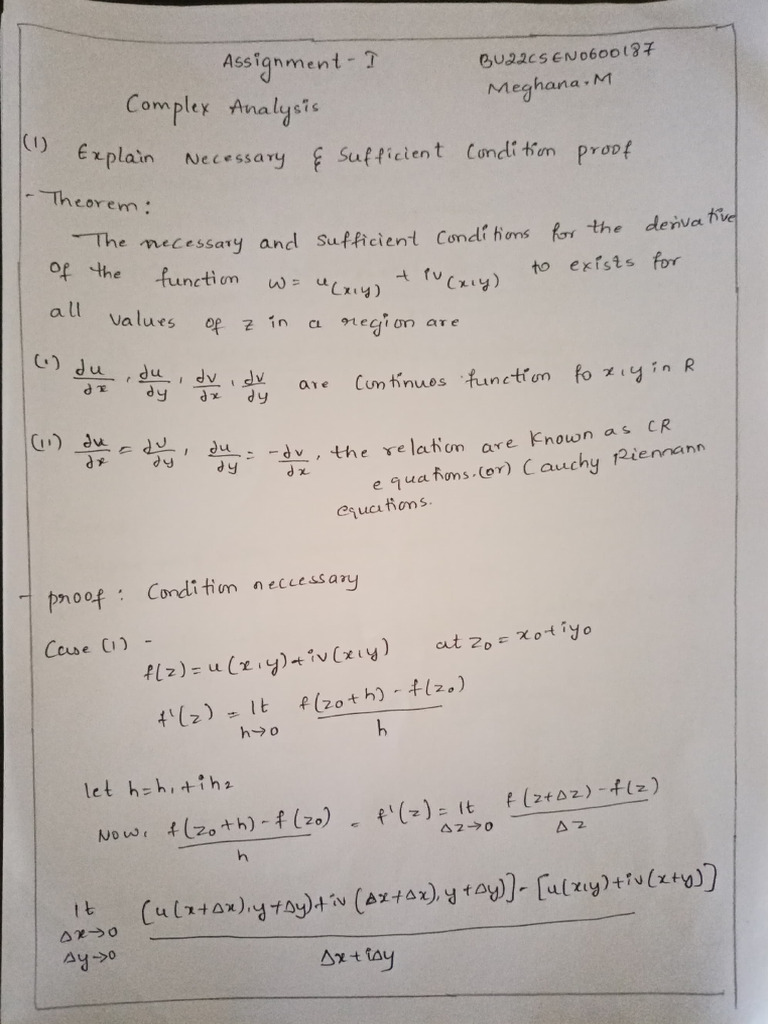 Assignment - I BU22CSEN0600187
Meghana.M
Complex Analysis
(1) Explain Necessary & Sufficient Condition proof
- Theorem:
The necessary and sufficient conditions for the derivative
of the function w = u(x,y) + iv(x,y) to exists for
all values of z in a region are
(i) du/dx, du/dy, dv/dx, dv/dy are Continues function fo x,y in R
(ii) du/dx = dv/dy, du/dy = -dv/dx, the relation are known as CR
equations.(or) Cauchy Riennann
equations.
- proof: Condition neccessary
Case (1) -
f(z) = u(x,y) + iv(x,y) at z₀ = x₀+iy₀
f'(z) = lt h→0 f(z₀+h) - f(z₀) / h
let h = h₁+ih₂
Now, f(z₀+h) - f(z₀) / h = f'(z) = lt Δz→0 f(z+Δz) - f(z) / Δz
lt Δx→0 Δy→0 [u(x+Δx),y+Δy)+iv(Δx+Δx),y+Δy)] - [u(x,y)+iv(x+y)] / Δx+iΔy